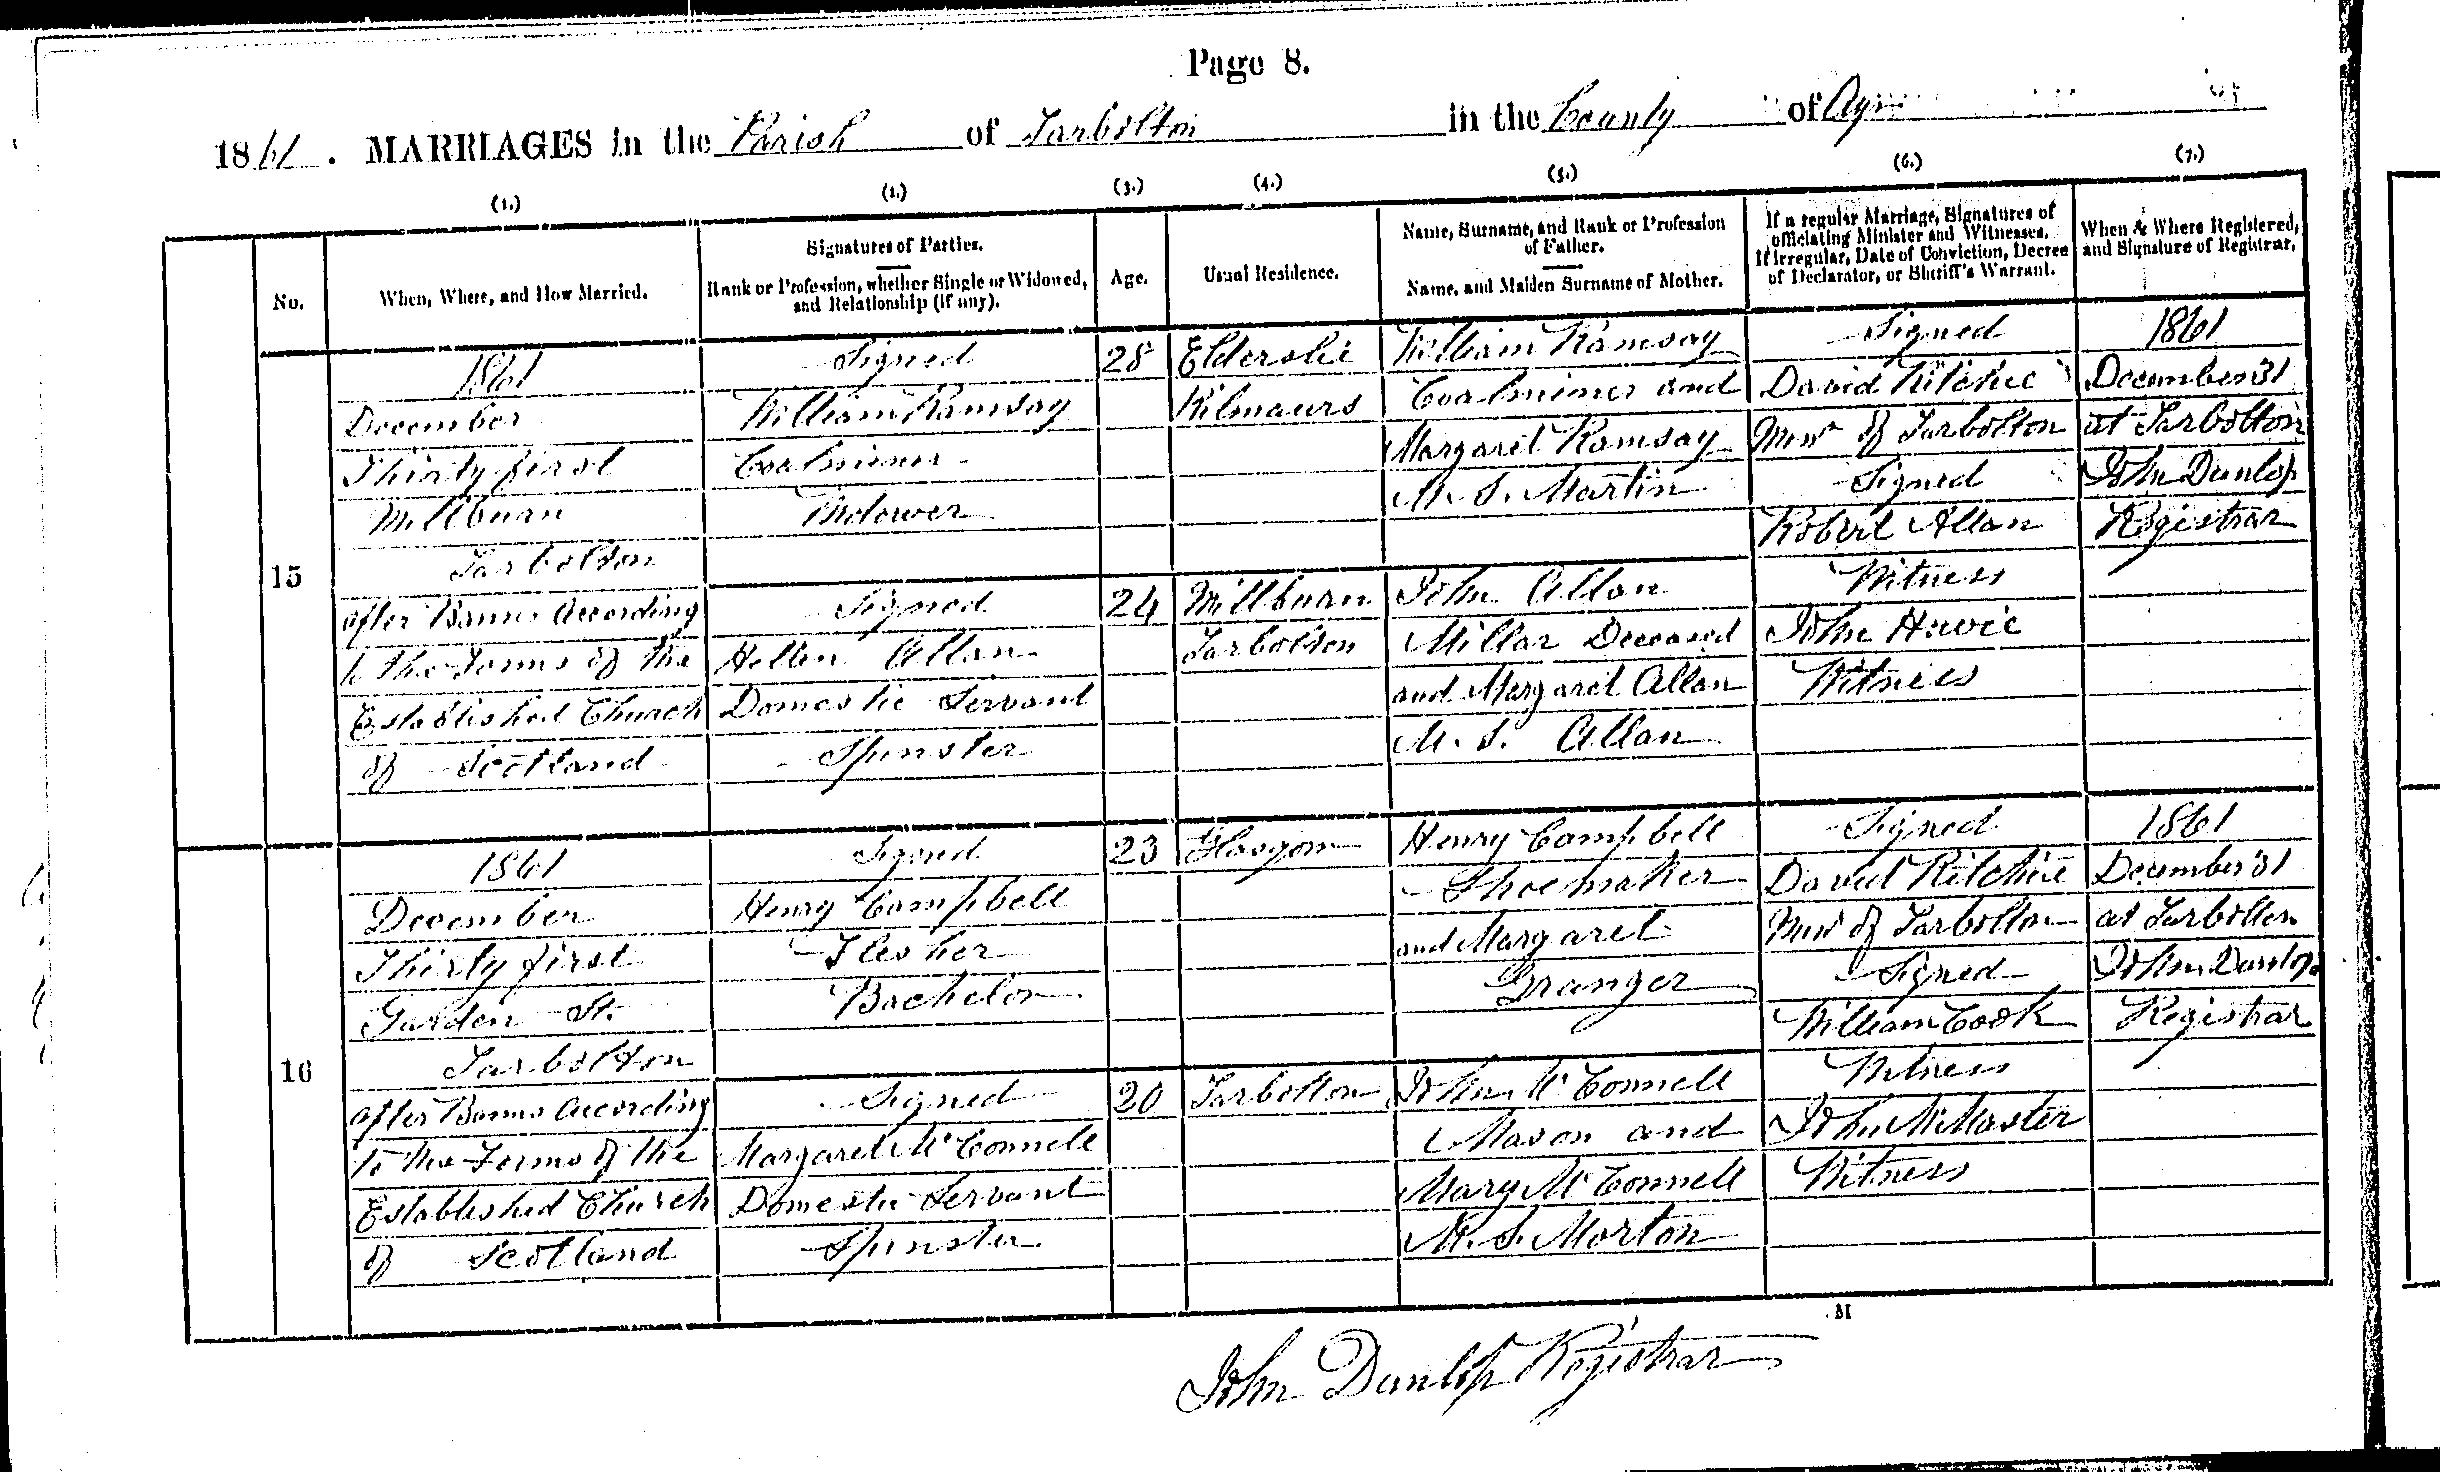 Page 8.
1861. MARRIAGES in the Parish of Tarbolton in the County of Ayr
(1.) (2.) (3.) (4.) (5.) (6.) (7.)
No.
When, Where, and How Married.
Signatures of Parties.
Rank or Profession, whether Single or Widowed,
and Relationship (if any).
Age.
Usual Residence.
Name, Surname, and Rank or Profession
of Father.
Name, and Maiden Surname of Mother.
If a regular Marriage, Signatures of
officiating Minister and Witnesses.
If irregular, Date of Conviction, Decree
of Declarator, or Sheriff's Warrant.
When & Where Registered,
and Signature of Registrar.
15
1861
December
Thirty first
Millburn
Tarbolton
after Banns According
to the Forms of the
Established Church
of Scotland
Signed
William Ramsay
Coalminer
Widower
28
Elderslie
Kilmaurs
William Ramsay
Coalminer and
Margaret Ramsay
M. S. Martin
Signed
Hellen Allan
Domestic Servant
Spinster
24
Millburn
Tarbolton
John Allan
Millar Deceased
and Margaret Allan
M. S. Allan
Signed
David Ritchie
Minr of Tarbolton
Signed
Robert Allan
Witness
John Howie
Witness
1861
December 31
at Tarbolton
John Dunlop
Registrar
16
1861
December
Thirty first
Garden St.
Tarbolton
after Banns According
to the Forms of the
Established Church
of Scotland
Signed
Henry Campbell
Flesher
Bachelor
23
Glasgow
Henry Campbell
Shoemaker
and Margaret
Granger
Signed
Margaret McConnell
Domestic Servant
Spinster
20
Tarbolton
John McConnell
Mason and
Mary McConnell
M. S. Morton
Signed
David Ritchie
Minr of Tarbolton
Signed
William Cook
Witness
John McMaster
Witness
1861
December 31
at Tarbolton
John Dunlop
Registrar
M
John Dunlop Registrar